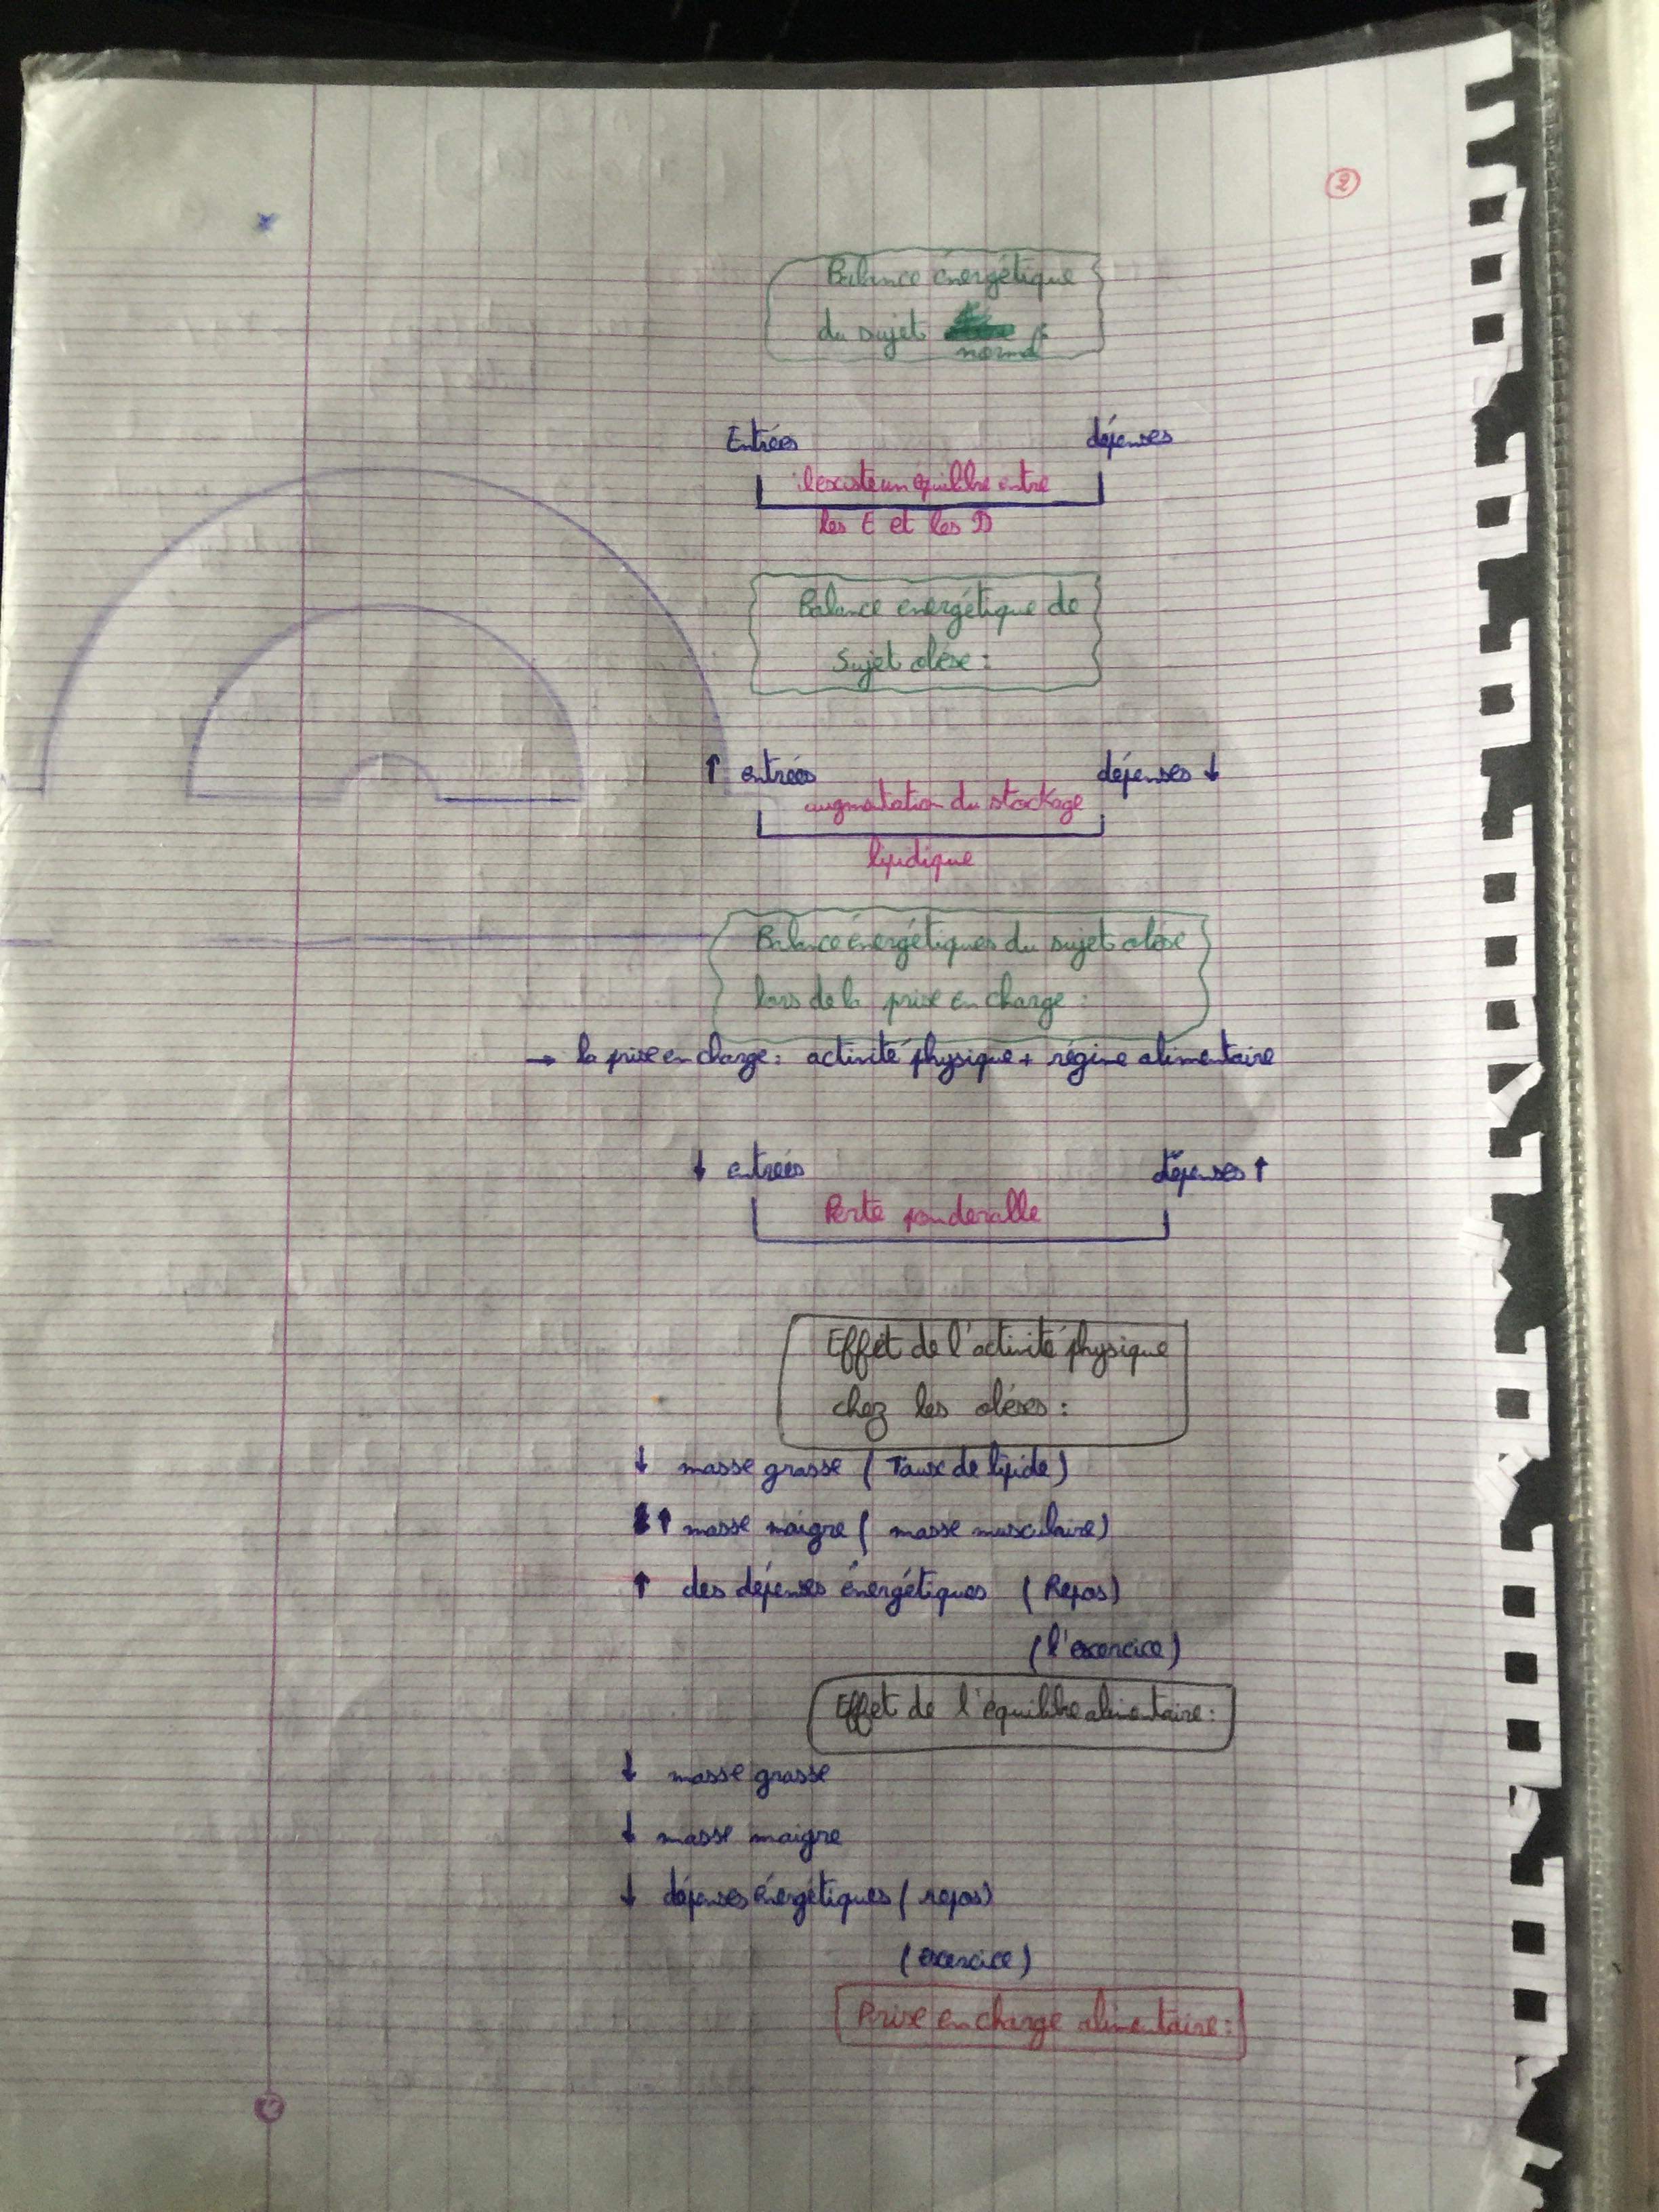 2
Balance énergétique
du sujet
normal
Entrées dépenses
il existe un équilibre entre
les E et les D
Balance energétique de
Sujet obèse :
↑ entrées dépenses ↓
augmentation du stockage
lipidique
Balance énergétiques du sujet obèse
lors de la prise en charge :
→ la prise en charge : activité physique + régime alimentaire
↓ entrées dépenses ↑
Perte ponderalle
Effet de l'activité physique
chez les obéses :
↓ masse grasse ( Taux de lipide )
↑ masse maigre ( masse musculaire)
↑ des dépenses énergétiques ( Repos)
(l'exercice)
Effet de l'équilibre alimentaire :
↓ masse grasse
↓ masse maigre
↓ dépenses énergétiques ( repos)
(exercice)
Prise en charge alimentaire :